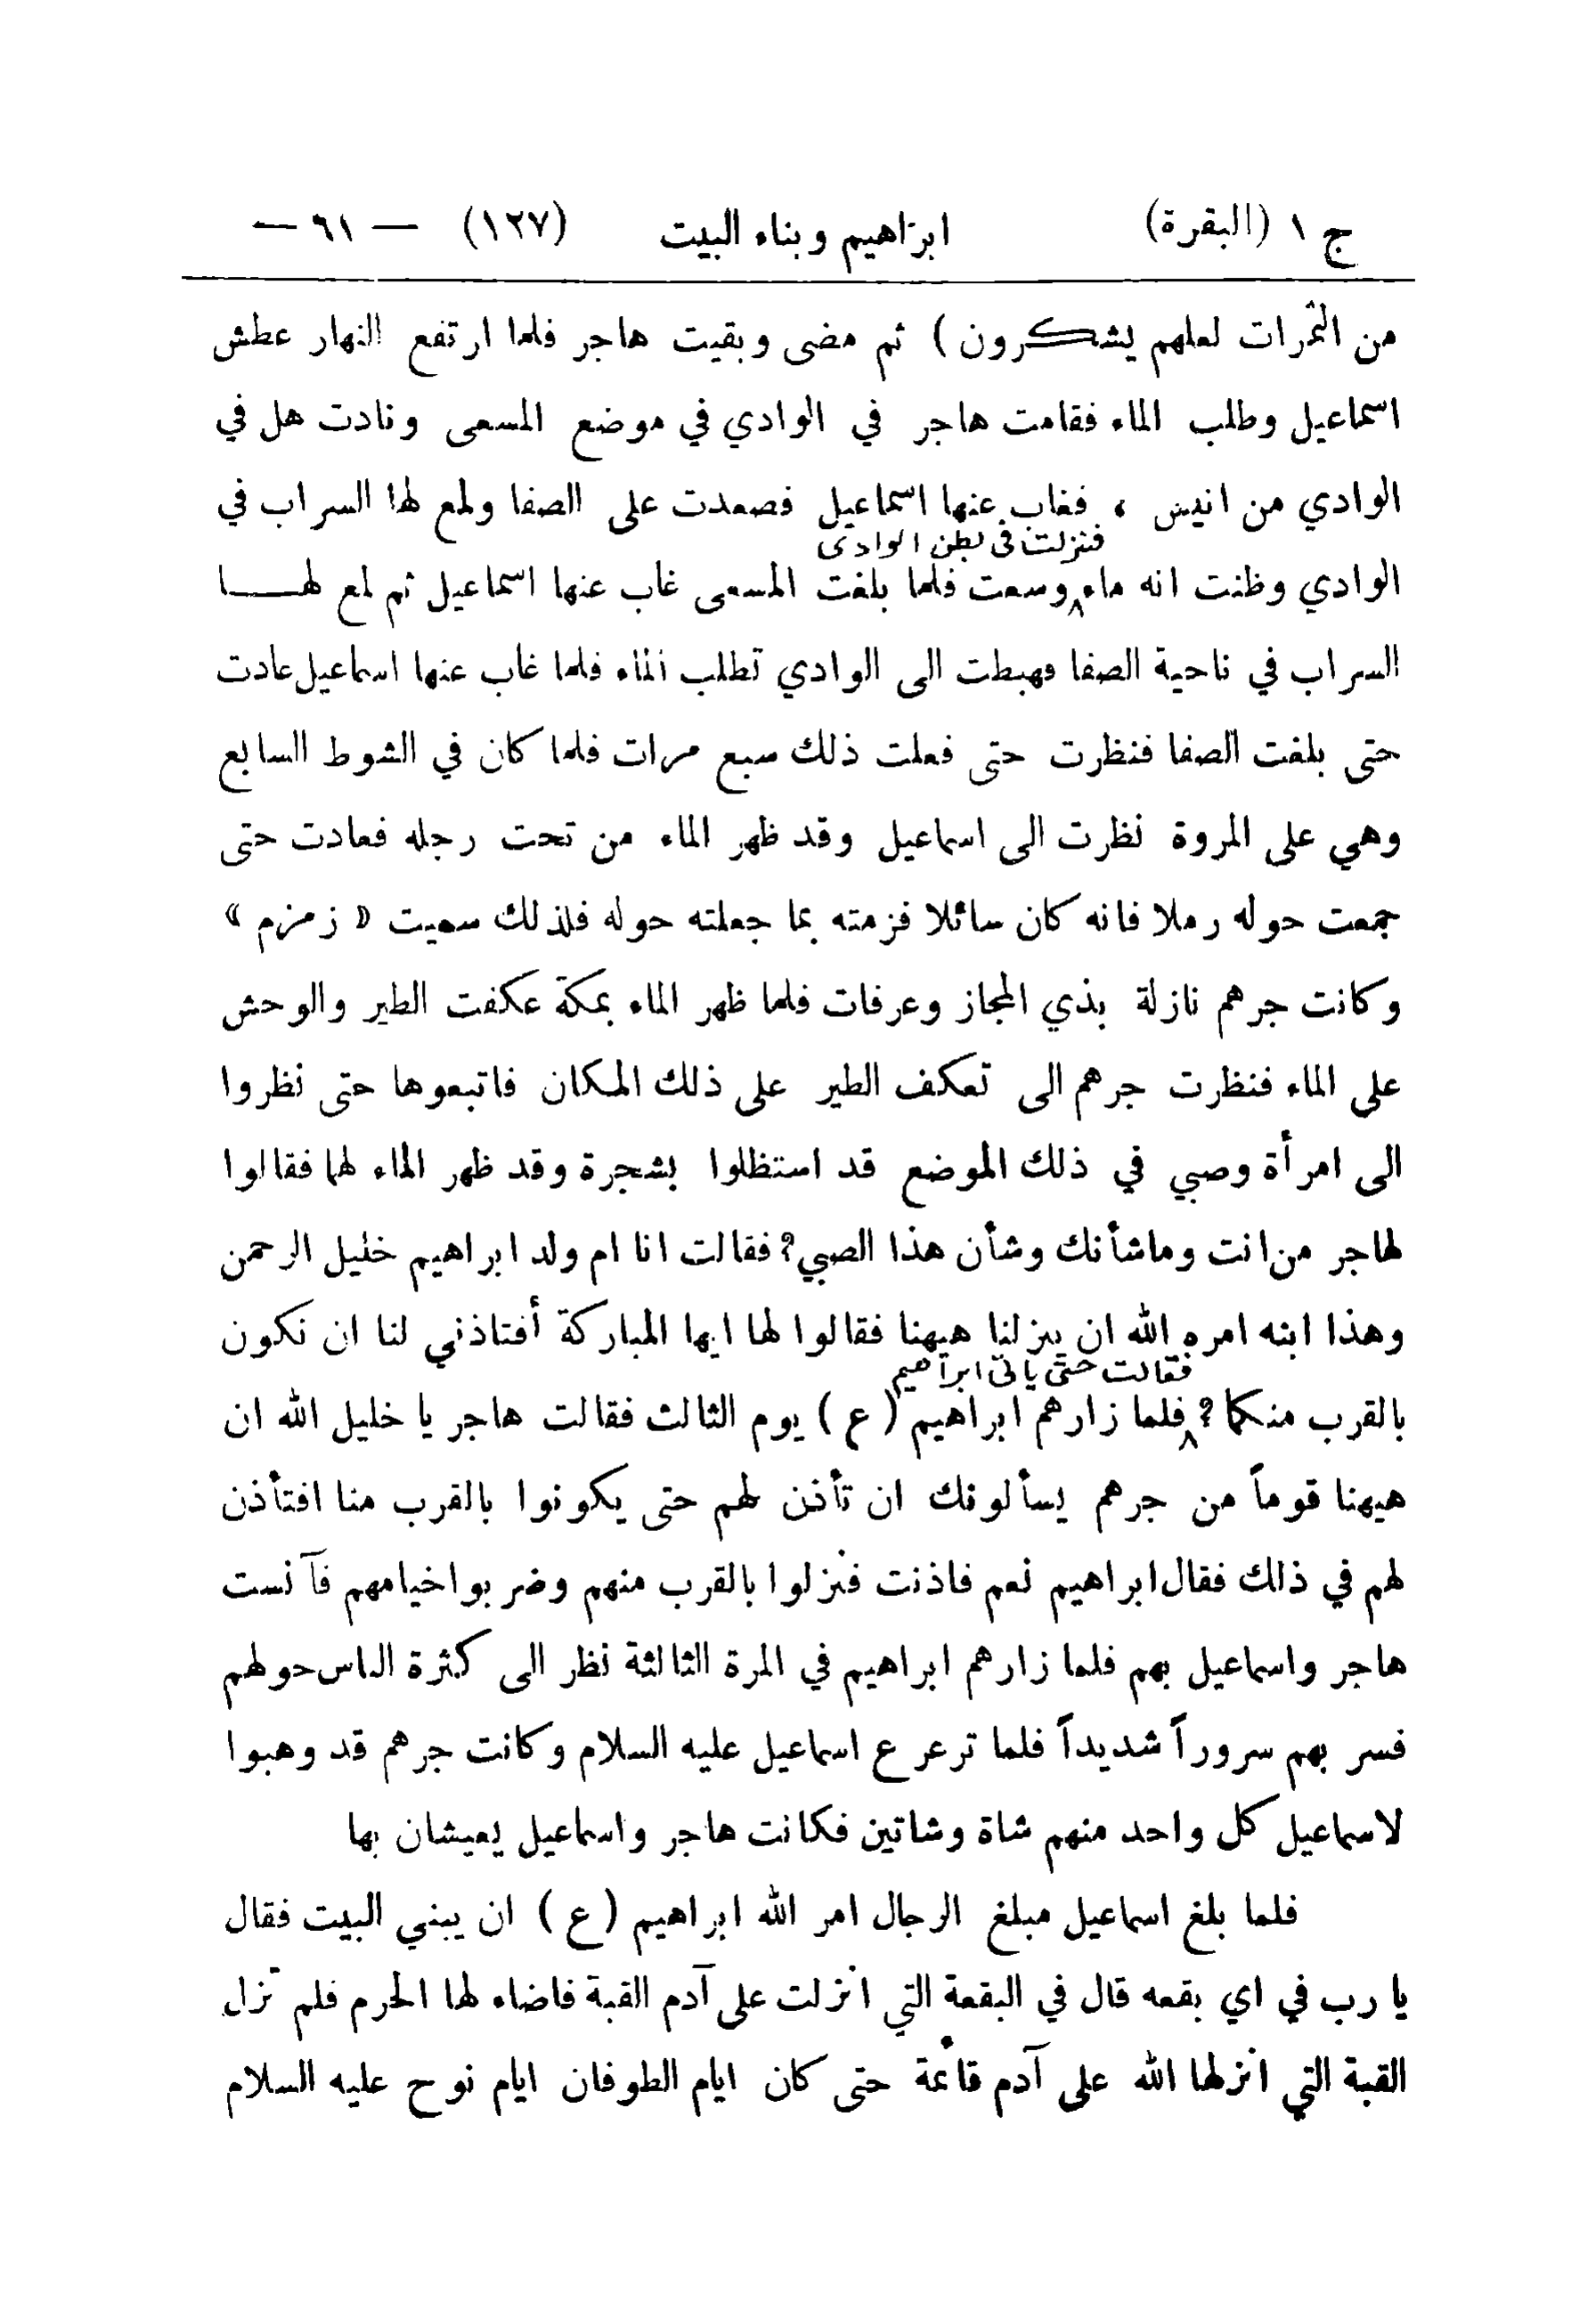 ج ١ (البقرة) ابراهيم وبناء البيت (١٢٧) — ٦١ —
من الثمرات لعلهم يشكرون ) ثم مضى وبقيت هاجر فلما ارتفع النهار عطش
اسماعيل وطلب الماء فقامت هاجر في الوادي في موضع المسعى ونادت هل في
الوادي من انيس ، فغاب عنها اسماعيل فصعدت على الصفا ولمع لها السراب في
فنزلت فى بطن الوادى
الوادي وظنت انه ماء ٨ وسعت فلما بلغت المسعى غاب عنها اسماعيل ثم لمع لهــــا
السراب في ناحية الصفا فهبطت الى الوادي تطلب الماء فلما غاب عنها اسماعيل عادت
حتى بلغت الصفا فنظرت حتى فعلت ذلك سبع مرات فلما كان في الشوط السابع
وهي على المروة نظرت الى اسماعيل وقد ظهر الماء من تحت رجله فعادت حتى
جمعت حوله رملا فانه كان سائلا فزمته بما جعلته حوله فلذلك سميت « زمزم »
وكانت جرهم نازلة بذي المجاز وعرفات فلما ظهر الماء بمكة عكفت الطير والوحش
على الماء فنظرت جرهم الى تعكف الطير على ذلك المكان فاتبعوها حتى نظروا
الى امرأة وصبي في ذلك الموضع قد استظلوا بشجرة وقد ظهر الماء لهما فقالوا
لهاجر من انت وماشأنك وشأن هذا الصبي؟ فقالت انا ام ولد ابراهيم خليل الرحمن
وهذا ابنه امره الله ان ينزلنا هيهنا فقالوا لها ايها المباركة أفتاذني لنا ان نكون
فقالت حتى ياتى ابراهيم
بالقرب منكما؟ ٨ فلما زارهم ابراهيم ( ع ) يوم الثالث فقالت هاجر يا خليل الله ان
هيهنا قوماً من جرهم يسألونك ان تأذن لهم حتى يكونوا بالقرب منا افتأذن
لهم في ذلك فقال ابراهيم نعم فاذنت فنزلوا بالقرب منهم وضربوا خيامهم فآنست
هاجر واسماعيل بهم فلما زارهم ابراهيم في المرة الثالثة نظر الى كثرة الناس حولهم
فسر بهم سروراً شديداً فلما ترعرع اسماعيل عليه السلام وكانت جرهم قد وهبوا
لاسماعيل كل واحد منهم شاة وشاتين فكانت هاجر واسماعيل يعيشان بها
فلما بلغ اسماعيل مبلغ الرجال امر الله ابراهيم ( ع ) ان يبني البيت فقال
يا رب في اي بقعه قال في البقعة التي انزلت على آدم القبة فاضاء لها الحرم فلم تزل
القبة التي انزلها الله على آدم قائمة حتى كان ايام الطوفان ايام نوح عليه السلام